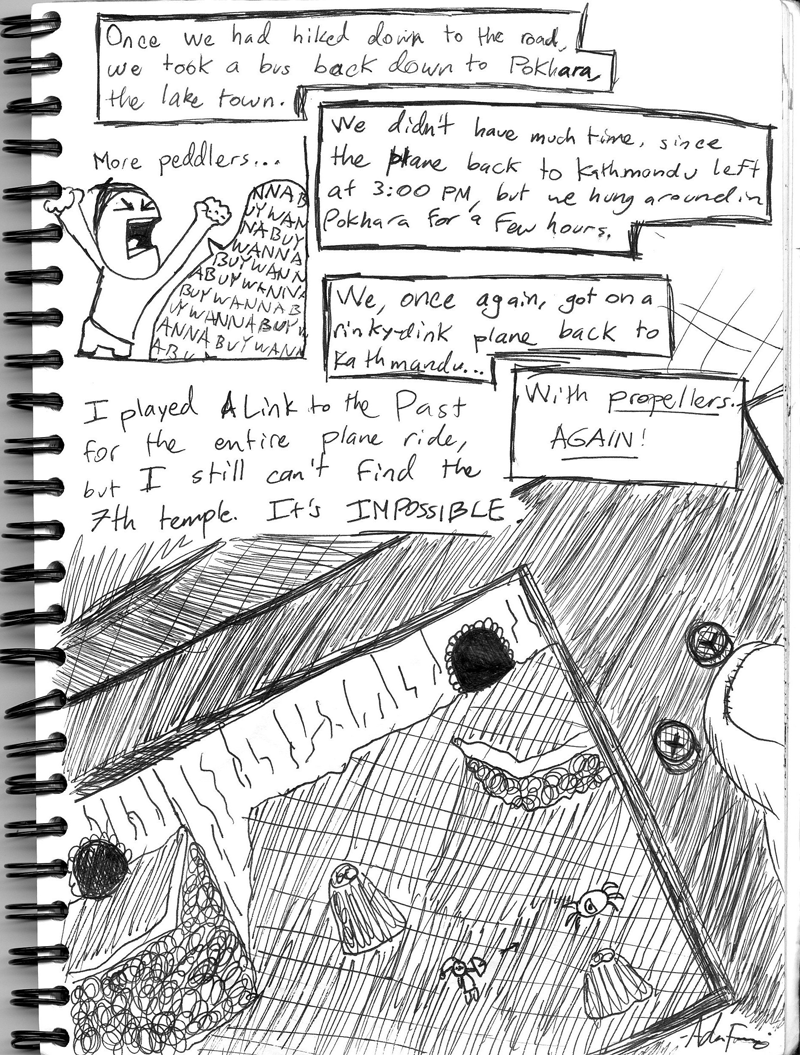 Once we had hiked down to the road,
we took a bus back down to Pokhara,
the lake town.
We didn't have much time, since
the plane back to Kathmandu left
at 3:00 PM, but we hung around in
Pokhara for a few hours.
More peddlers...
NNAB
UYWAN
NABUY
WANNA
BUYWANN
ABUYWANNA
BUYWANNAB
UYWANNABUY
ANNABUYWAN
ABUYWANN
We, once again, got on a
rinky-dink plane back to
Kathmandu...
With propellers.
AGAIN!
I played A Link to the Past
for the entire plane ride,
but I still can't find the
7th temple. It's IMPOSSIBLE.